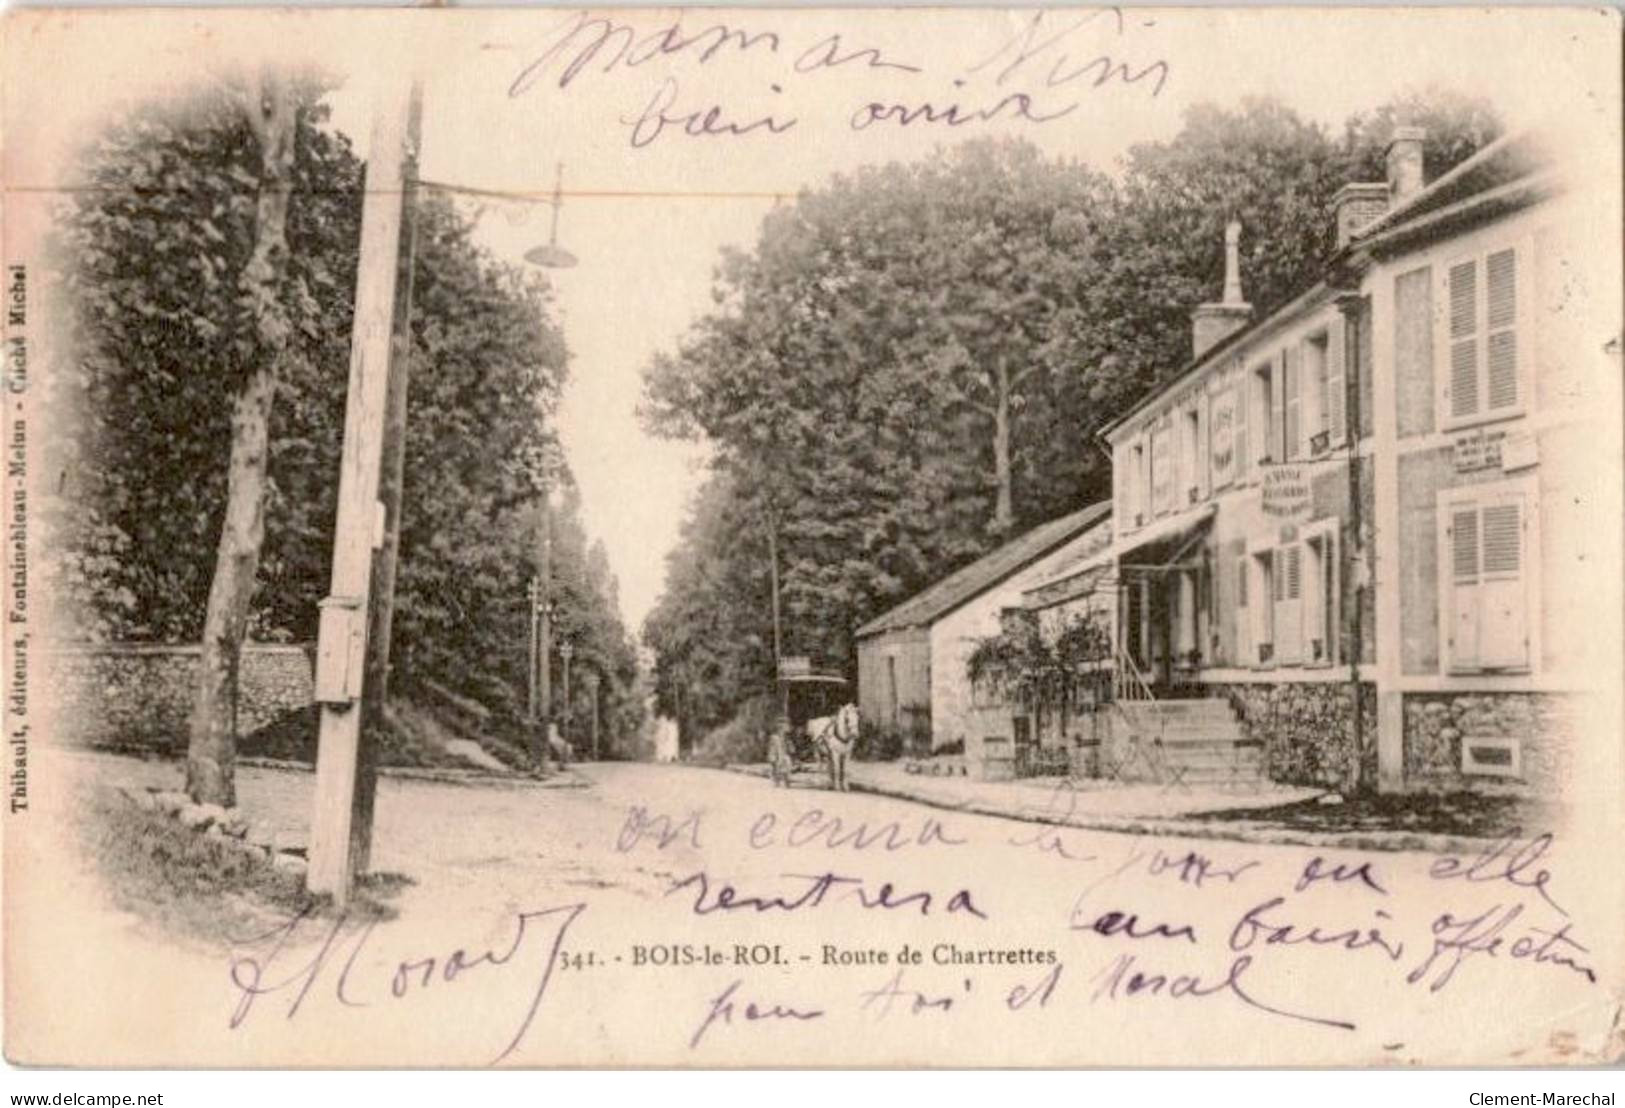 maman Nini
bien arrive
Thibault, éditeurs, Fontainebleau-Melun - Cliché Michel
on ecrira le jour ou elle
rentrera un baiser affection
341. - BOIS-le-ROI. - Route de Chartrettes
pour toi et Marcel
delcampe.net
Clement-Marechal